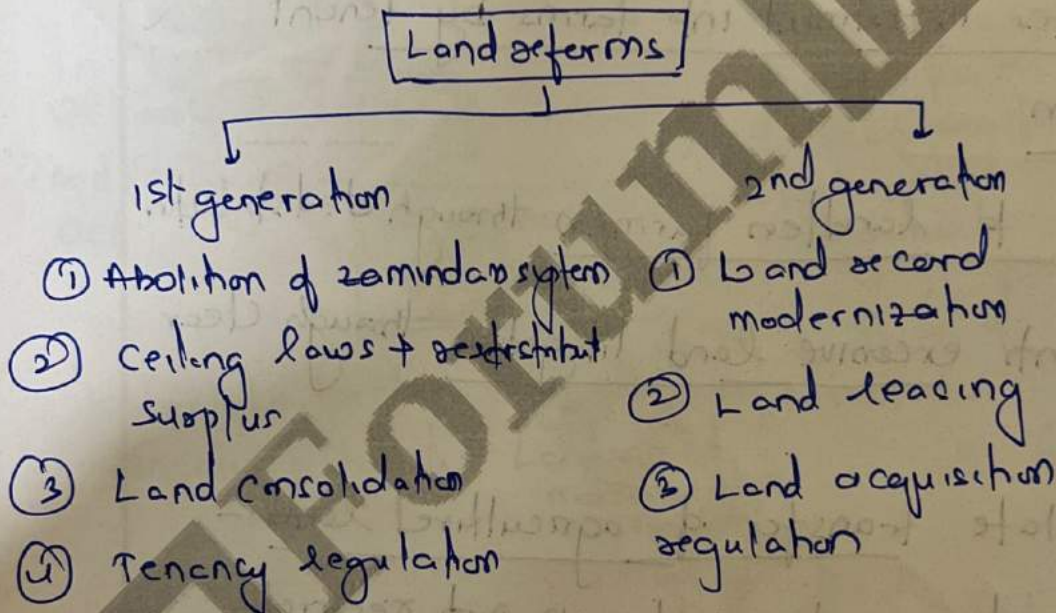 Land reforms
1st generation
① Abolition of zamindar system
② Ceiling laws + redistribut
surplus
③ Land consolidation
④ Tenancy regulation
2nd generation
① Land record
modernization
② Land leasing
③ Land acquisition
regulation
Forum